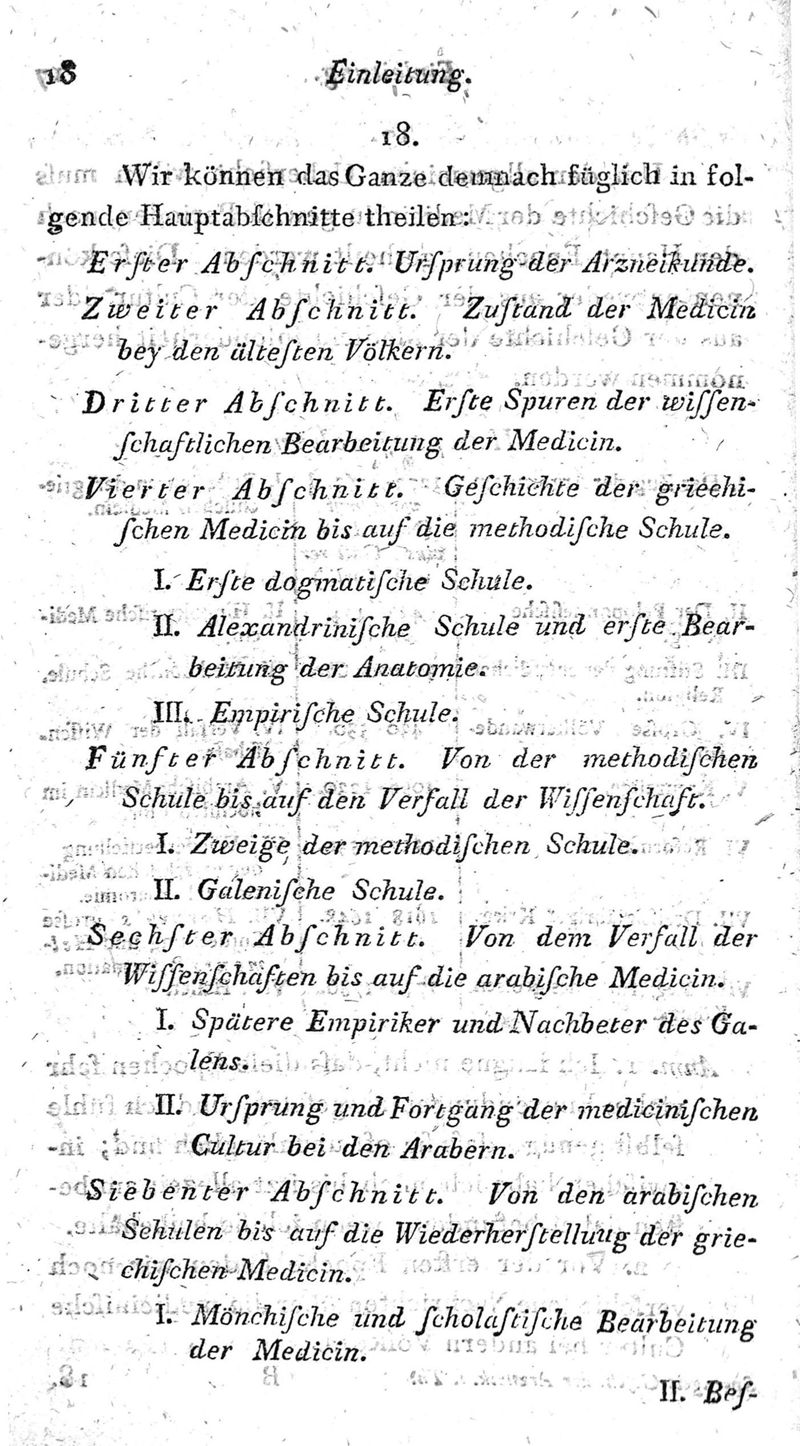 18 Einleitung.
18.
Wir können das Ganze demnach füglich in fol-
gende Hauptabſchnitte theilen:
Erſter Abſchnitt. Urſprung der Arzneikunde.
Zweiter Abſchnitt. Zuſtand der Medicin
bey den älteſten Völkern.
Dritter Abſchnitt. Erſte Spuren der wiſſen-
ſchaftlichen Bearbeitung der Medicin.
Vierter Abſchnitt. Geſchichte der griechi-
ſchen Medicin bis auf die methodiſche Schule.
I. Erſte dogmatiſche Schule.
II. Alexandriniſche Schule und erſte Bear-
beitung der Anatomie.
III. Empiriſche Schule.
Fünfter Abſchnitt. Von der methodiſchen
Schule bis auf den Verfall der Wiſſenſchaft.
I. Zweige der methodiſchen Schule.
II. Galeniſche Schule.
Sechſter Abſchnitt. Von dem Verfall der
Wiſſenſchaften bis auf die arabiſche Medicin.
I. Spätere Empiriker und Nachbeter des Ga-
lens.
II. Urſprung und Fortgang der mediciniſchen
Cultur bei den Arabern.
Siebenter Abſchnitt. Von den arabiſchen
Schulen bis auf die Wiederherſtelluug der grie-
chiſchen Medicin.
I. Mönchiſche und ſcholaſtiſche Bearbeitung
der Medicin.
II. Beſ-